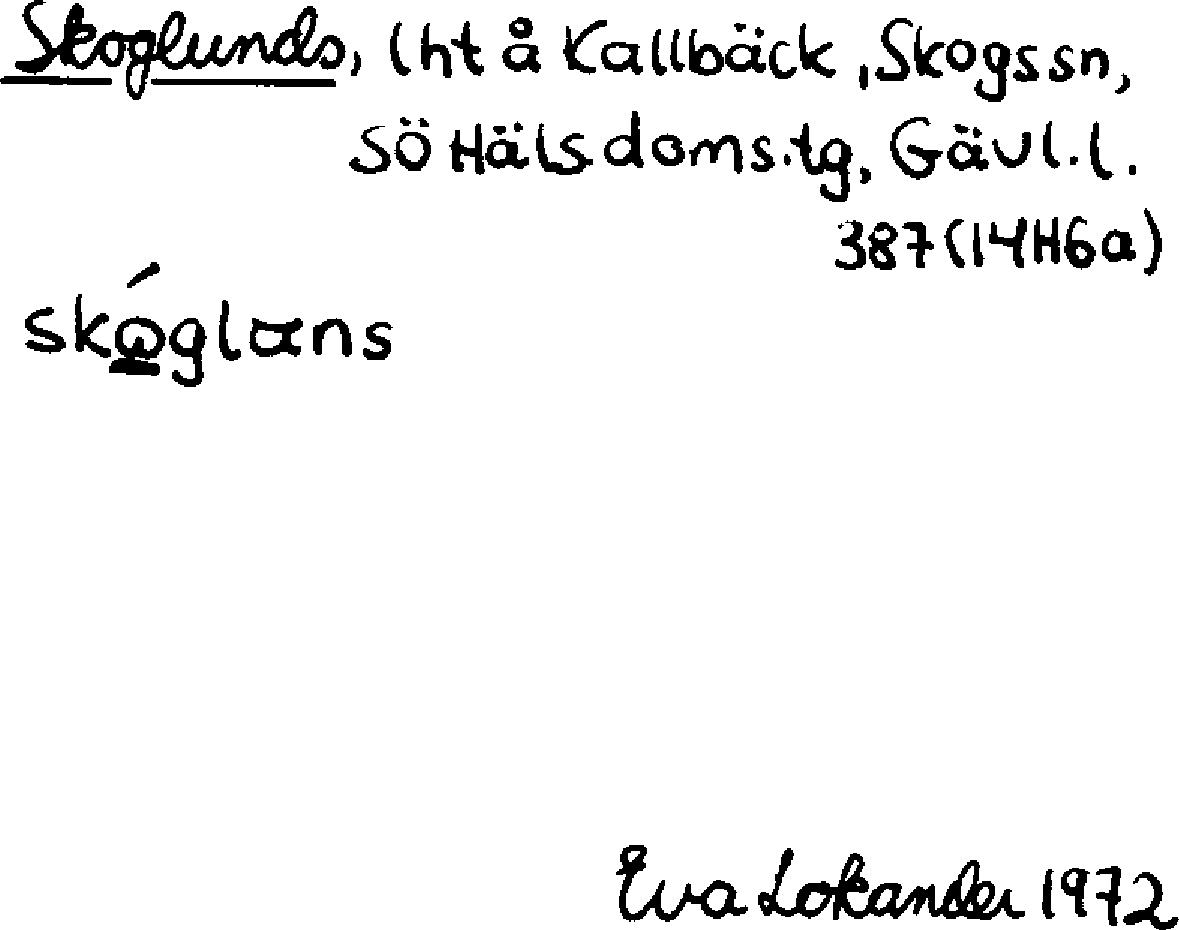 Skoglunds, lht å Kallbäck, Skogs sn,
SÖ Häls doms.tg, Gävl.l.
387 (14H6a)
Eva Lokander 1972